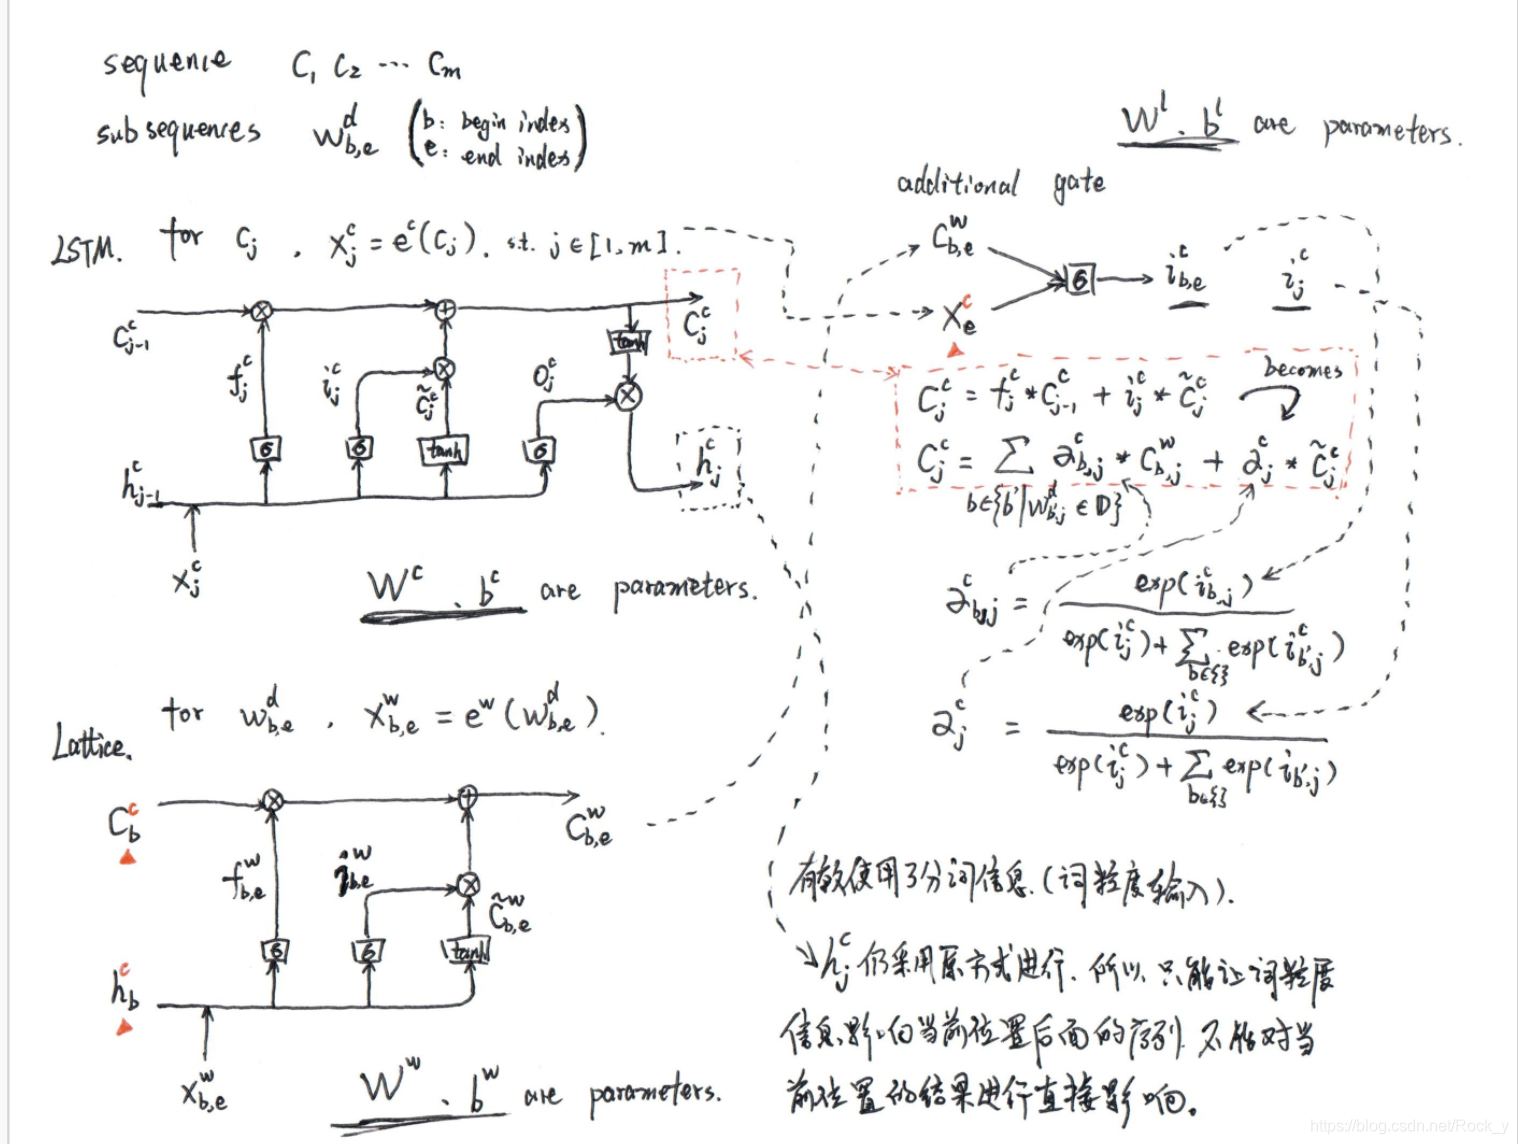 sequence C₁ C₂ ··· Cₘ
subsequences w^d_{b,e} (b: begin index
e: end index)
LSTM. for C_j , x^c_j = e^c(C_j). s.t. j∈[1,m].
C^c_{j-1}
f^c_j
i^c_j
C̃^c_j
O^c_j
tanh
C^c_j
σ
σ
tanh
σ
h^c_{j-1}
h^c_j
x^c_j
W^c . b^c are parameters.
Lattice. for w^d_{b,e} , x^w_{b,e} = e^w(w^d_{b,e}).
C^c_b
C^w_{b,e}
f^w_{b,e}
i^w_{b,e}
C̃^w_{b,e}
σ
σ
tanh
h^c_b
x^w_{b,e}
W^w . b^w are parameters.
W^l . b^l are parameters.
additional gate
C^w_{b,e}
x^c_e
σ
i^c_{b,e}
i^c_j
becomes
C^c_j = f^c_j * C^c_{j-1} + i^c_j * C̃^c_j
C^c_j = Σ a^c_{b,j} * C^w_{b,j} + a^c_j * C̃^c_j
b∈{b'|w^d_{b',j}∈D}
a^c_{b,j} = exp(i^c_{b,j})
exp(i^c_j) + Σ_{b'∈{}} exp(i^c_{b',j})
a^c_j = exp(i^c_j)
exp(i^c_j) + Σ_{b'∈{}} exp(i^c_{b',j})
有效使用了分词信息.(词粒度输入).
h^c_j 仍采用原方式进行. 所以, 只能让词粒度
信息影响当前位置后面的序列. 不能对当
前位置的结果进行直接影响。
https://blog.csdn.net/Rock_y